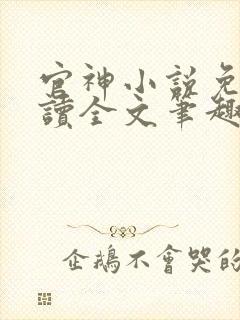 官神小説免
讀全文筆趣
企鵝不會哭的